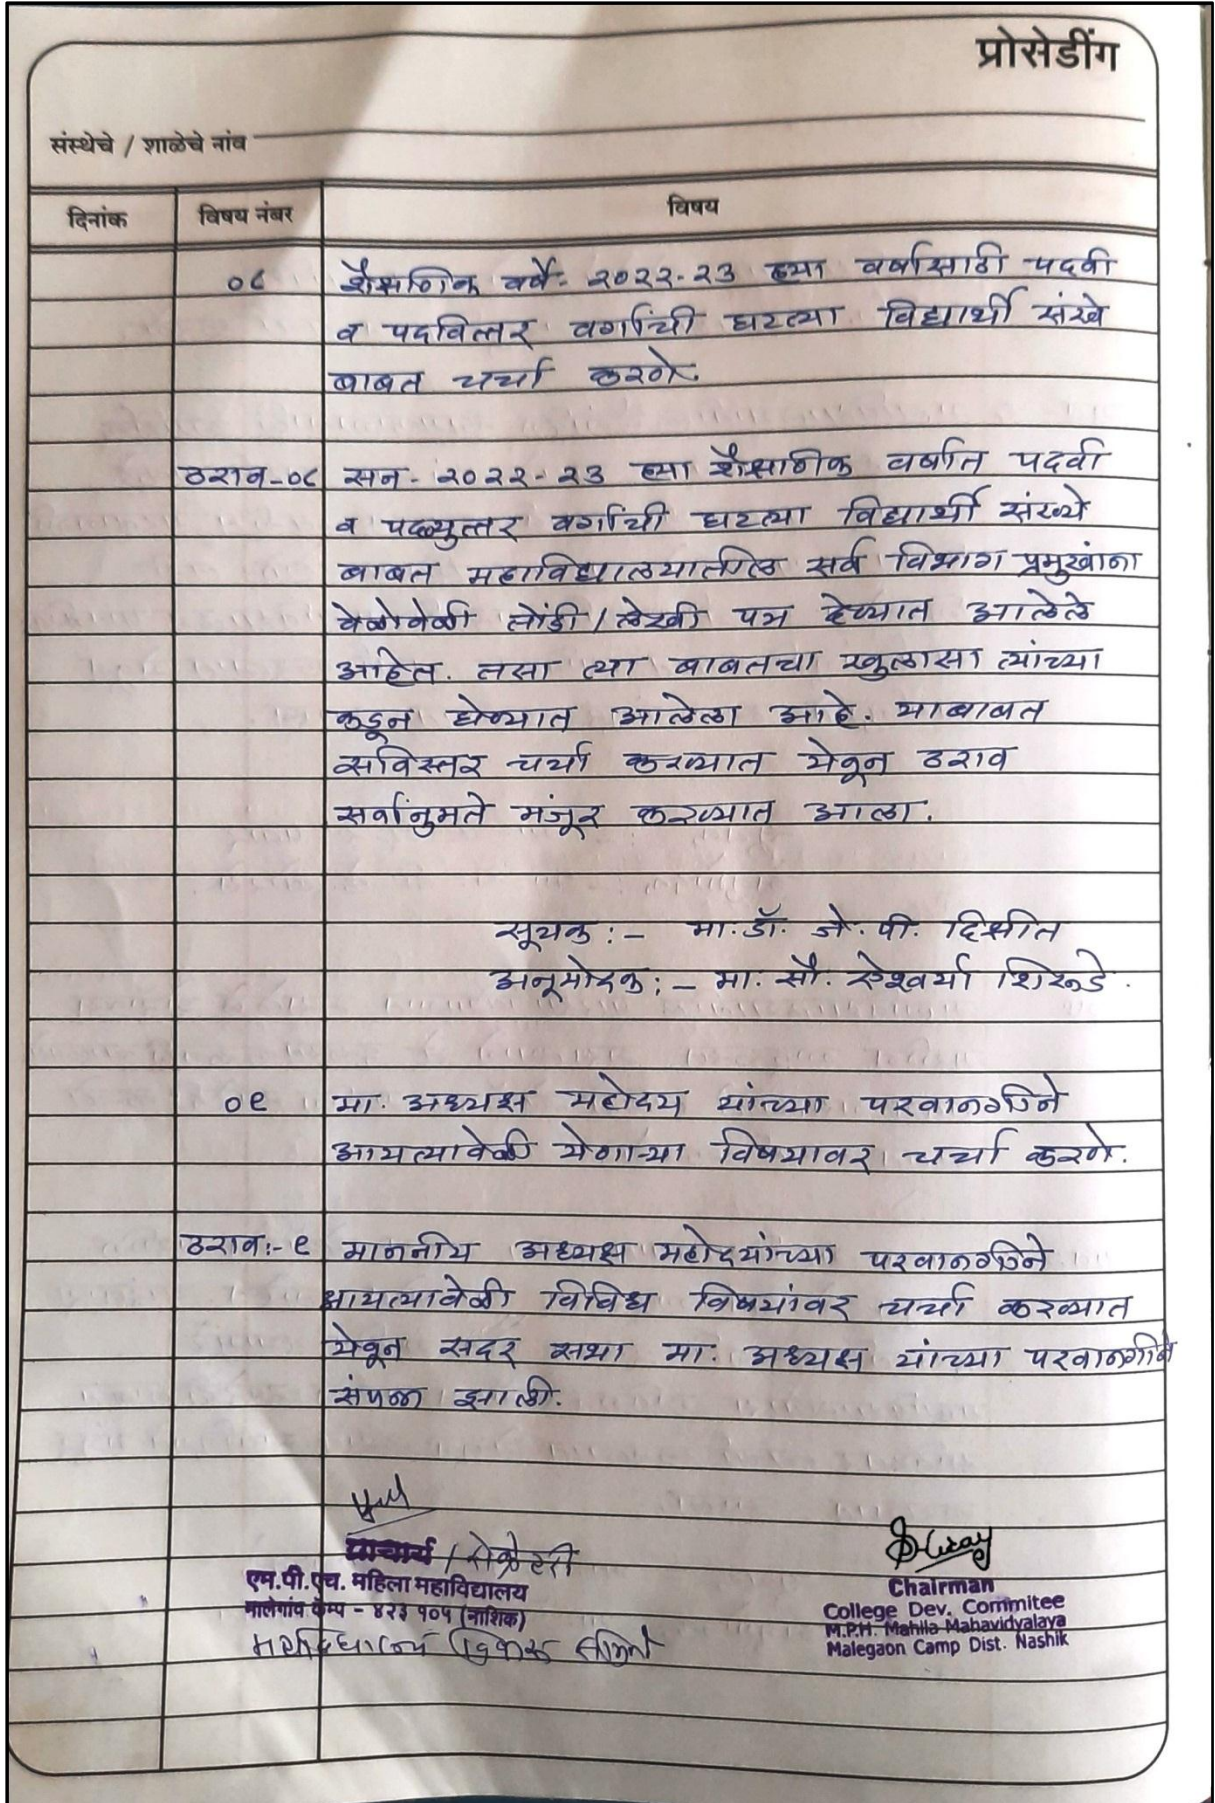 प्रोसेडींग
संस्थेचे / शाळेचे नांव
दिनांक विषय नंबर विषय
०८ शैक्षणिक वर्षे- २०२२-२३ ह्या वर्षासाठी पदवी
व पदवित्तर वर्गाची घटत्या विद्यार्थी संख्ये
बाबत चर्चा करणे.
ठराव-०८ सन- २०२२-२३ ह्या शैक्षणिक वर्षात पदवी
व पदव्युत्तर वर्गाची घटत्या विद्यार्थी संख्ये
बाबत महाविद्यालयातील सर्व विभाग प्रमुखांना
वेळोवेळी तोंडी/लेखी पत्र देण्यात आलेले
आहेत. तसा त्या बाबतचा खुलासा त्यांच्या
कडून घेण्यात आलेला आहे. याबाबत
सविस्तर चर्चा करण्यात येवून ठराव
सर्वानुमते मंजूर करण्यात आला.
सूचक:- मा. डॉ. जे. पी. दिक्षीत
अनूमोदक:- मा. सौ. ऐश्वर्या शिरुडे.
०९ मा. अध्यक्ष महोदय यांच्या परवानगीने
आयत्यावेळी येणाऱ्या विषयावर चर्चा करणे.
ठराव:-९ माननीय अध्यक्ष महोदयांच्या परवानगीने
आयत्यावेळी विविध विषयांवर चर्चा करण्यात
येवून सदर सभा मा. अध्यक्ष यांच्या परवानगीने
संपन्न झाली.
प्राचार्य / सेक्रेटरी
एम.पी.एच. महिला महाविद्यालय
मालेगांव कॅम्प - ४२३ १०५ (नाशिक)
महाविद्यालय विकास समिती
Chairman
College Dev. Commitee
M.P.H. Mahila Mahavidyalaya
Malegaon Camp Dist. Nashik